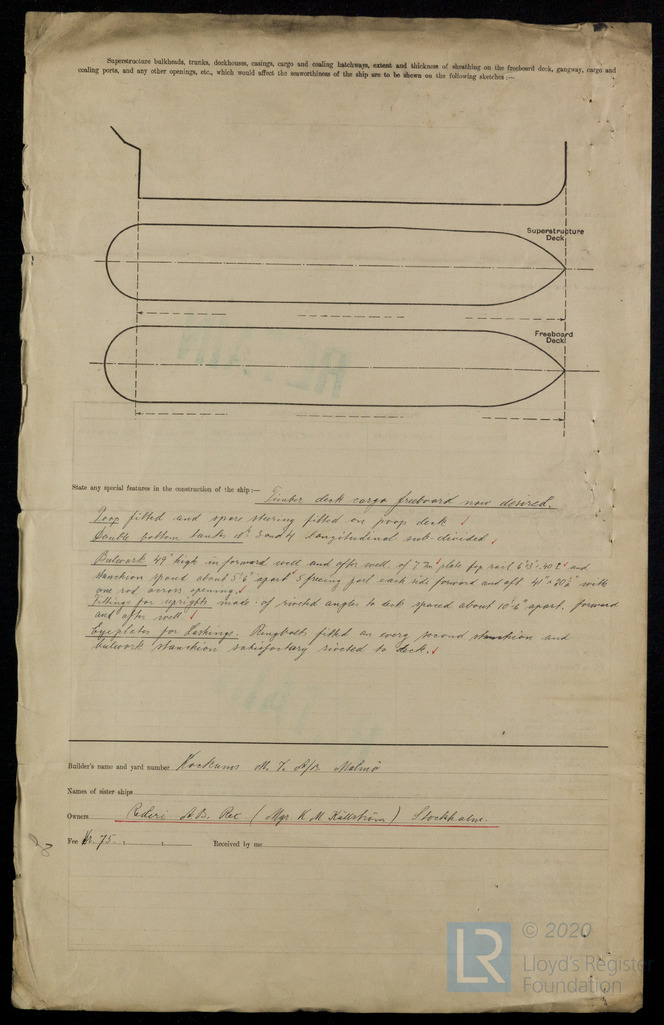 Superstructure bulkheads, trunks, deckhouses, casings, cargo and coaling hatchways, extent and thickness of sheathing on the freeboard deck, gangway, cargo and
coaling ports, and any other openings, etc., which would affect the seaworthiness of the ship are to be shown on the following sketches :—
Superstructure
Deck
Freeboard
Deck
State any special features in the construction of the ship :— Timber deck cargo freeboard now desired.
Poop fitted and spare steering fitted on poop deck
Double bottom tanks No 3 and 4 longitudinal sub-divided
Bulwark 49" high in forward well and after well of 7.7 m/m plate top rail and
stanchion spaced about 5'6" apart 5 freeing port each side forward and aft with
one rod across opening.
Fittings for uprights made of riveted angles to deck spaced about 10'6" apart, forward
and after well
Eyeplates for Lashings. Ringbolts fitted on every second stanchion and
bulwark stanchion satisfactory riveted to deck.
Builder's name and yard number Kockums M. V. A/B Malmö
Names of sister ships
Owners Rederi A.B. Rex (Mgr. K M Källström) Stockholm.
Fee Kr. 75 Received by me
© 2020
LR
Lloyd's Register
Foundation